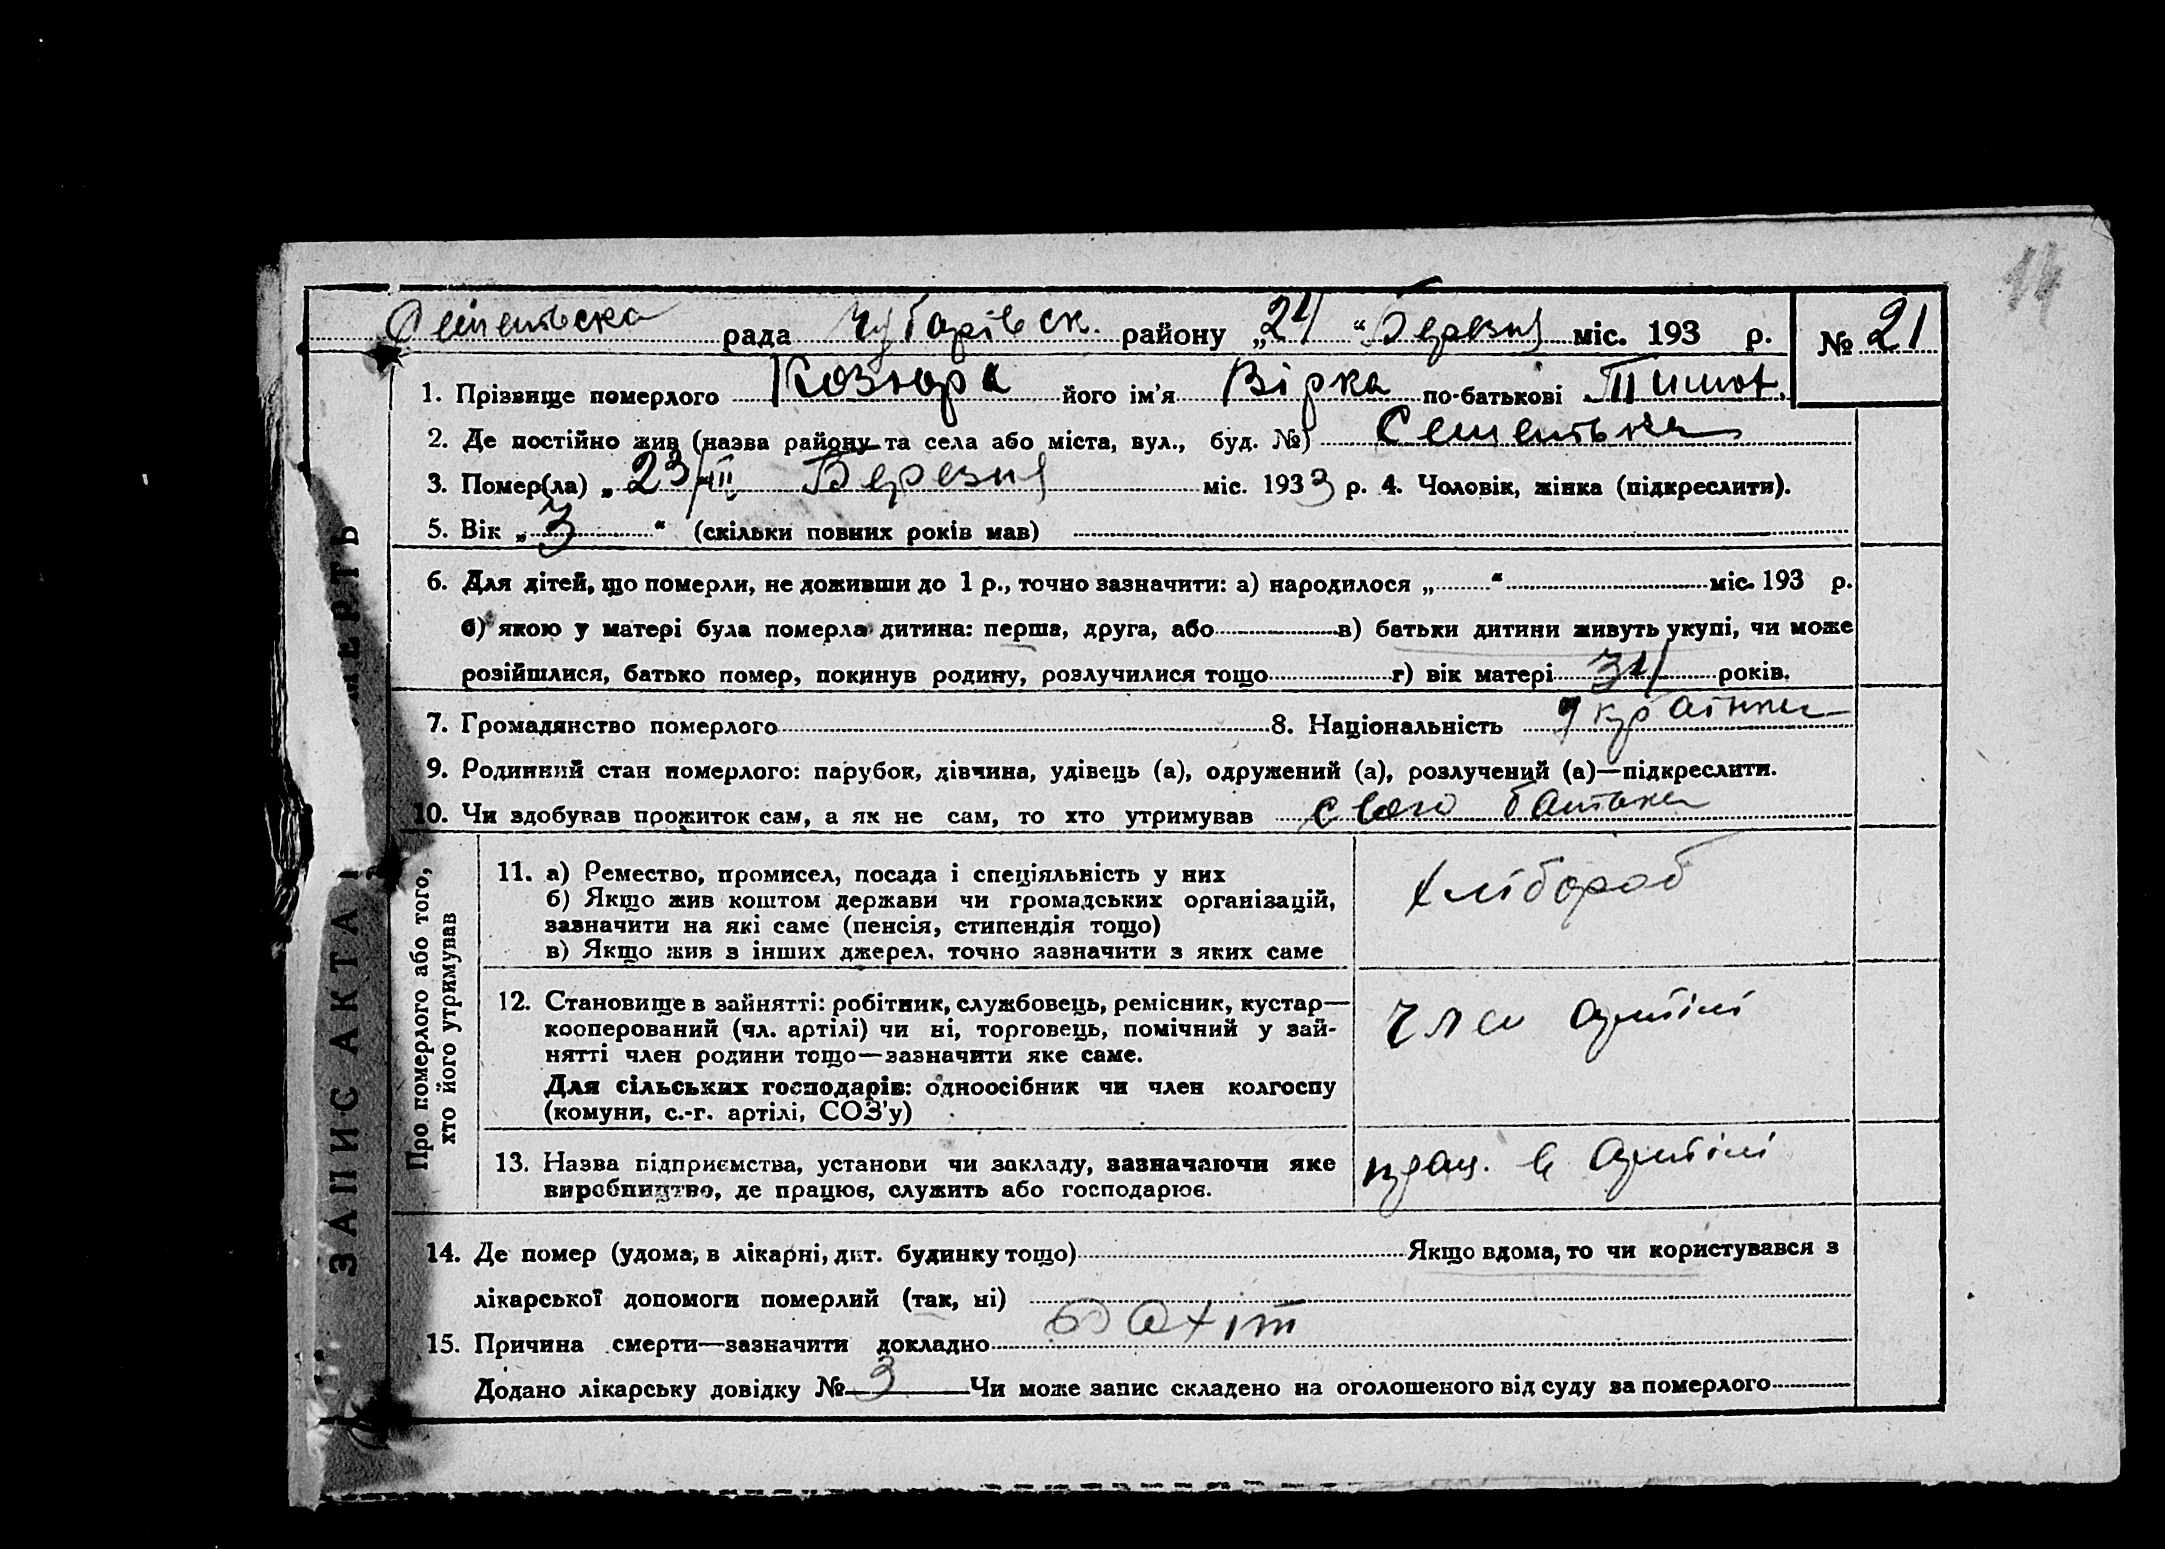 14
Семенівська рада Чубарівськ. району „24“ Березня міс. 193 р. № 21
1. Прізвище померлого Козюра його ім'я Вірка по-батькові Тимот.
2. Де постійно жив (назва району та села або міста, вул., буд. №) Семенівка
3. Помер(ла) „23/III Березня міс. 1933 р. 4. Чоловік, жінка (підкреслити).
5. Вік „3“ (скільки повних років мав)
6. Для дітей, що померли, не доживши до 1 р., точно зазначити: а) народилося „ “ міс. 193 р.
б) якою у матері була померла дитина: перша, друга, або в) батьки дитини живуть укупі, чи може
розійшлися, батько помер, покинув родину, розлучилися тощо г) вік матері 34 років.
7. Громадянство померлого 8. Національність Українка
9. Родинний стан померлого: парубок, дівчина, удівець (а), одружений (а), розлучений (а)—підкреслити.
10. Чи здобував прожиток сам, а як не сам, то хто утримував свого батька
ЗАПИС АКТА СМЕРТЬ
Про померлого або того,
хто його утримував
11. а) Ремество, промисел, посада і спеціяльність у них
б) Якщо жив коштом держави чи громадських організацій,
зазначити на які саме (пенсія, стипендія тощо)
в) Якщо жив з інших джерел, точно зазначити з яких саме
хлібороб
12. Становище в зайнятті: робітник, службовець, ремісник, кустар—
кооперований (чл. артілі) чи ні, торговець, помічний у зай-
нятті член родини тощо—зазначити яке саме.
Для сільських господарів: одноосібник чи член колгоспу
(комуни, с.-г. артілі, СОЗ'у)
член артілі
13. Назва підприємства, установи чи закладу, зазначаючи яке
виробництво, де працює, служить або господарює.
прац. в артілі
14. Де помер (удома, в лікарні, дит. будинку тощо) Якщо вдома, то чи користувався з
лікарської допомоги померлий (так, ні)
15. Причина смерти—зазначити докладно Рахіт
Додано лікарську довідку № 3 Чи може запис складено на оголошеного від суду за померлого